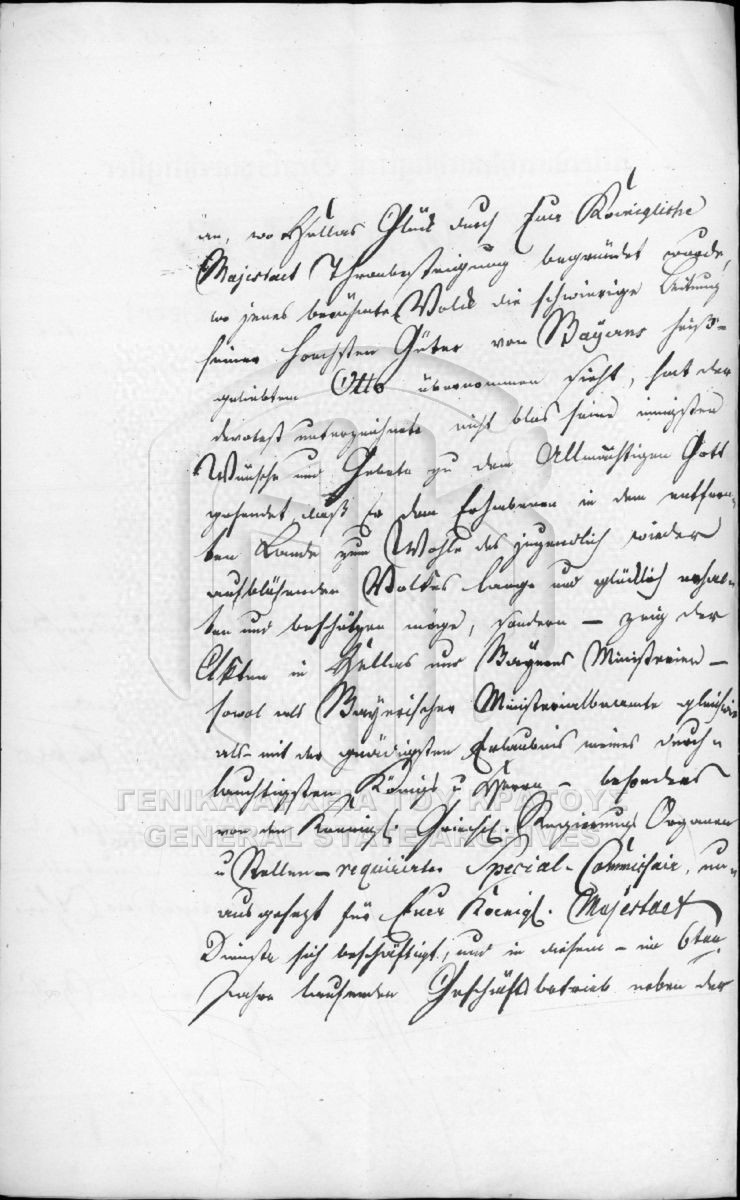 an, wo Hellas Glück durch Euer Königliche
Majestaet Thronbesteigung begründet wurde,
wo jenes berühmte Volck die schwierige Leitung
seiner hoechsten Güter von Bayerns heiß-
geliebten Otto übernommen sieht, hat der
devotest unterzeichnete nicht blos seine innigsten
Wünsche und Gebete zu dem Allmächtigen Gott
gesendet, daß Er den Erhabenen in dem entfern-
ten Lande zum Wohle des jugendlich wieder
aufblühenden Volkes lange und glücklich erhal-
ten und beschützen möge, sondern — zeig der
Akten in Hellas und Bayerns Ministerien —
sowol als Bayerischer Ministerialbeamte gleichwie
als mit der gnädigsten Erlaubnis meines durch-
lauchtigsten Königs u Herrn — besonders
von den Koenigl. Griech. Regierungs Organen
u Stellen — requirirter Special-Commissair, un-
ausgesezt für Euer Koenigl. Majestaet
Dienste sich beschäftigt, und in diesem — im 6ten
Jahre laufenden Geschäftsbetrieb neben der
ΓΕΝΙΚΑ ΑΡΧΕΙΑ ΤΟΥ ΚΡΑΤΟΥΣ
GENERAL STATE ARCHIVES